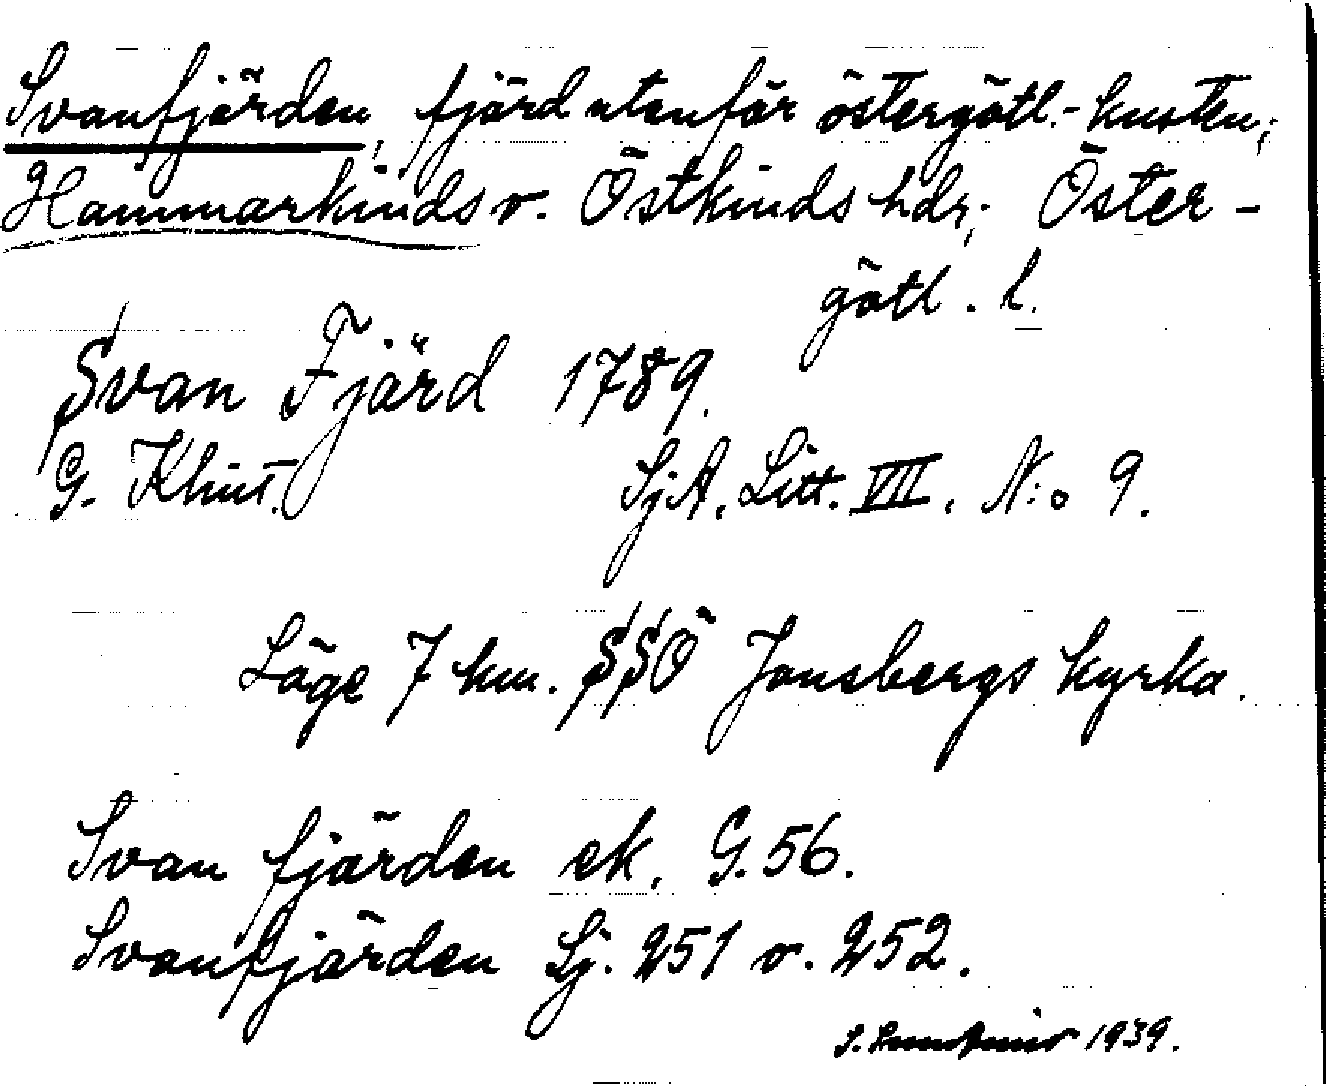 Svanfjärden, fjärd utanför östergötl.-kusten;
Hammarkinds o. Östkinds hdr; Öster-
götl. l.
Svan Fjärd 1789.
G. Klint. SjA. Litt. VII. N:o 9.
Läge 7 km. SSÖ Jonsbergs kyrka.
Svan fjärden ek. G. 56.
Svanfjärden Sj. 251 o. 252.
1939.